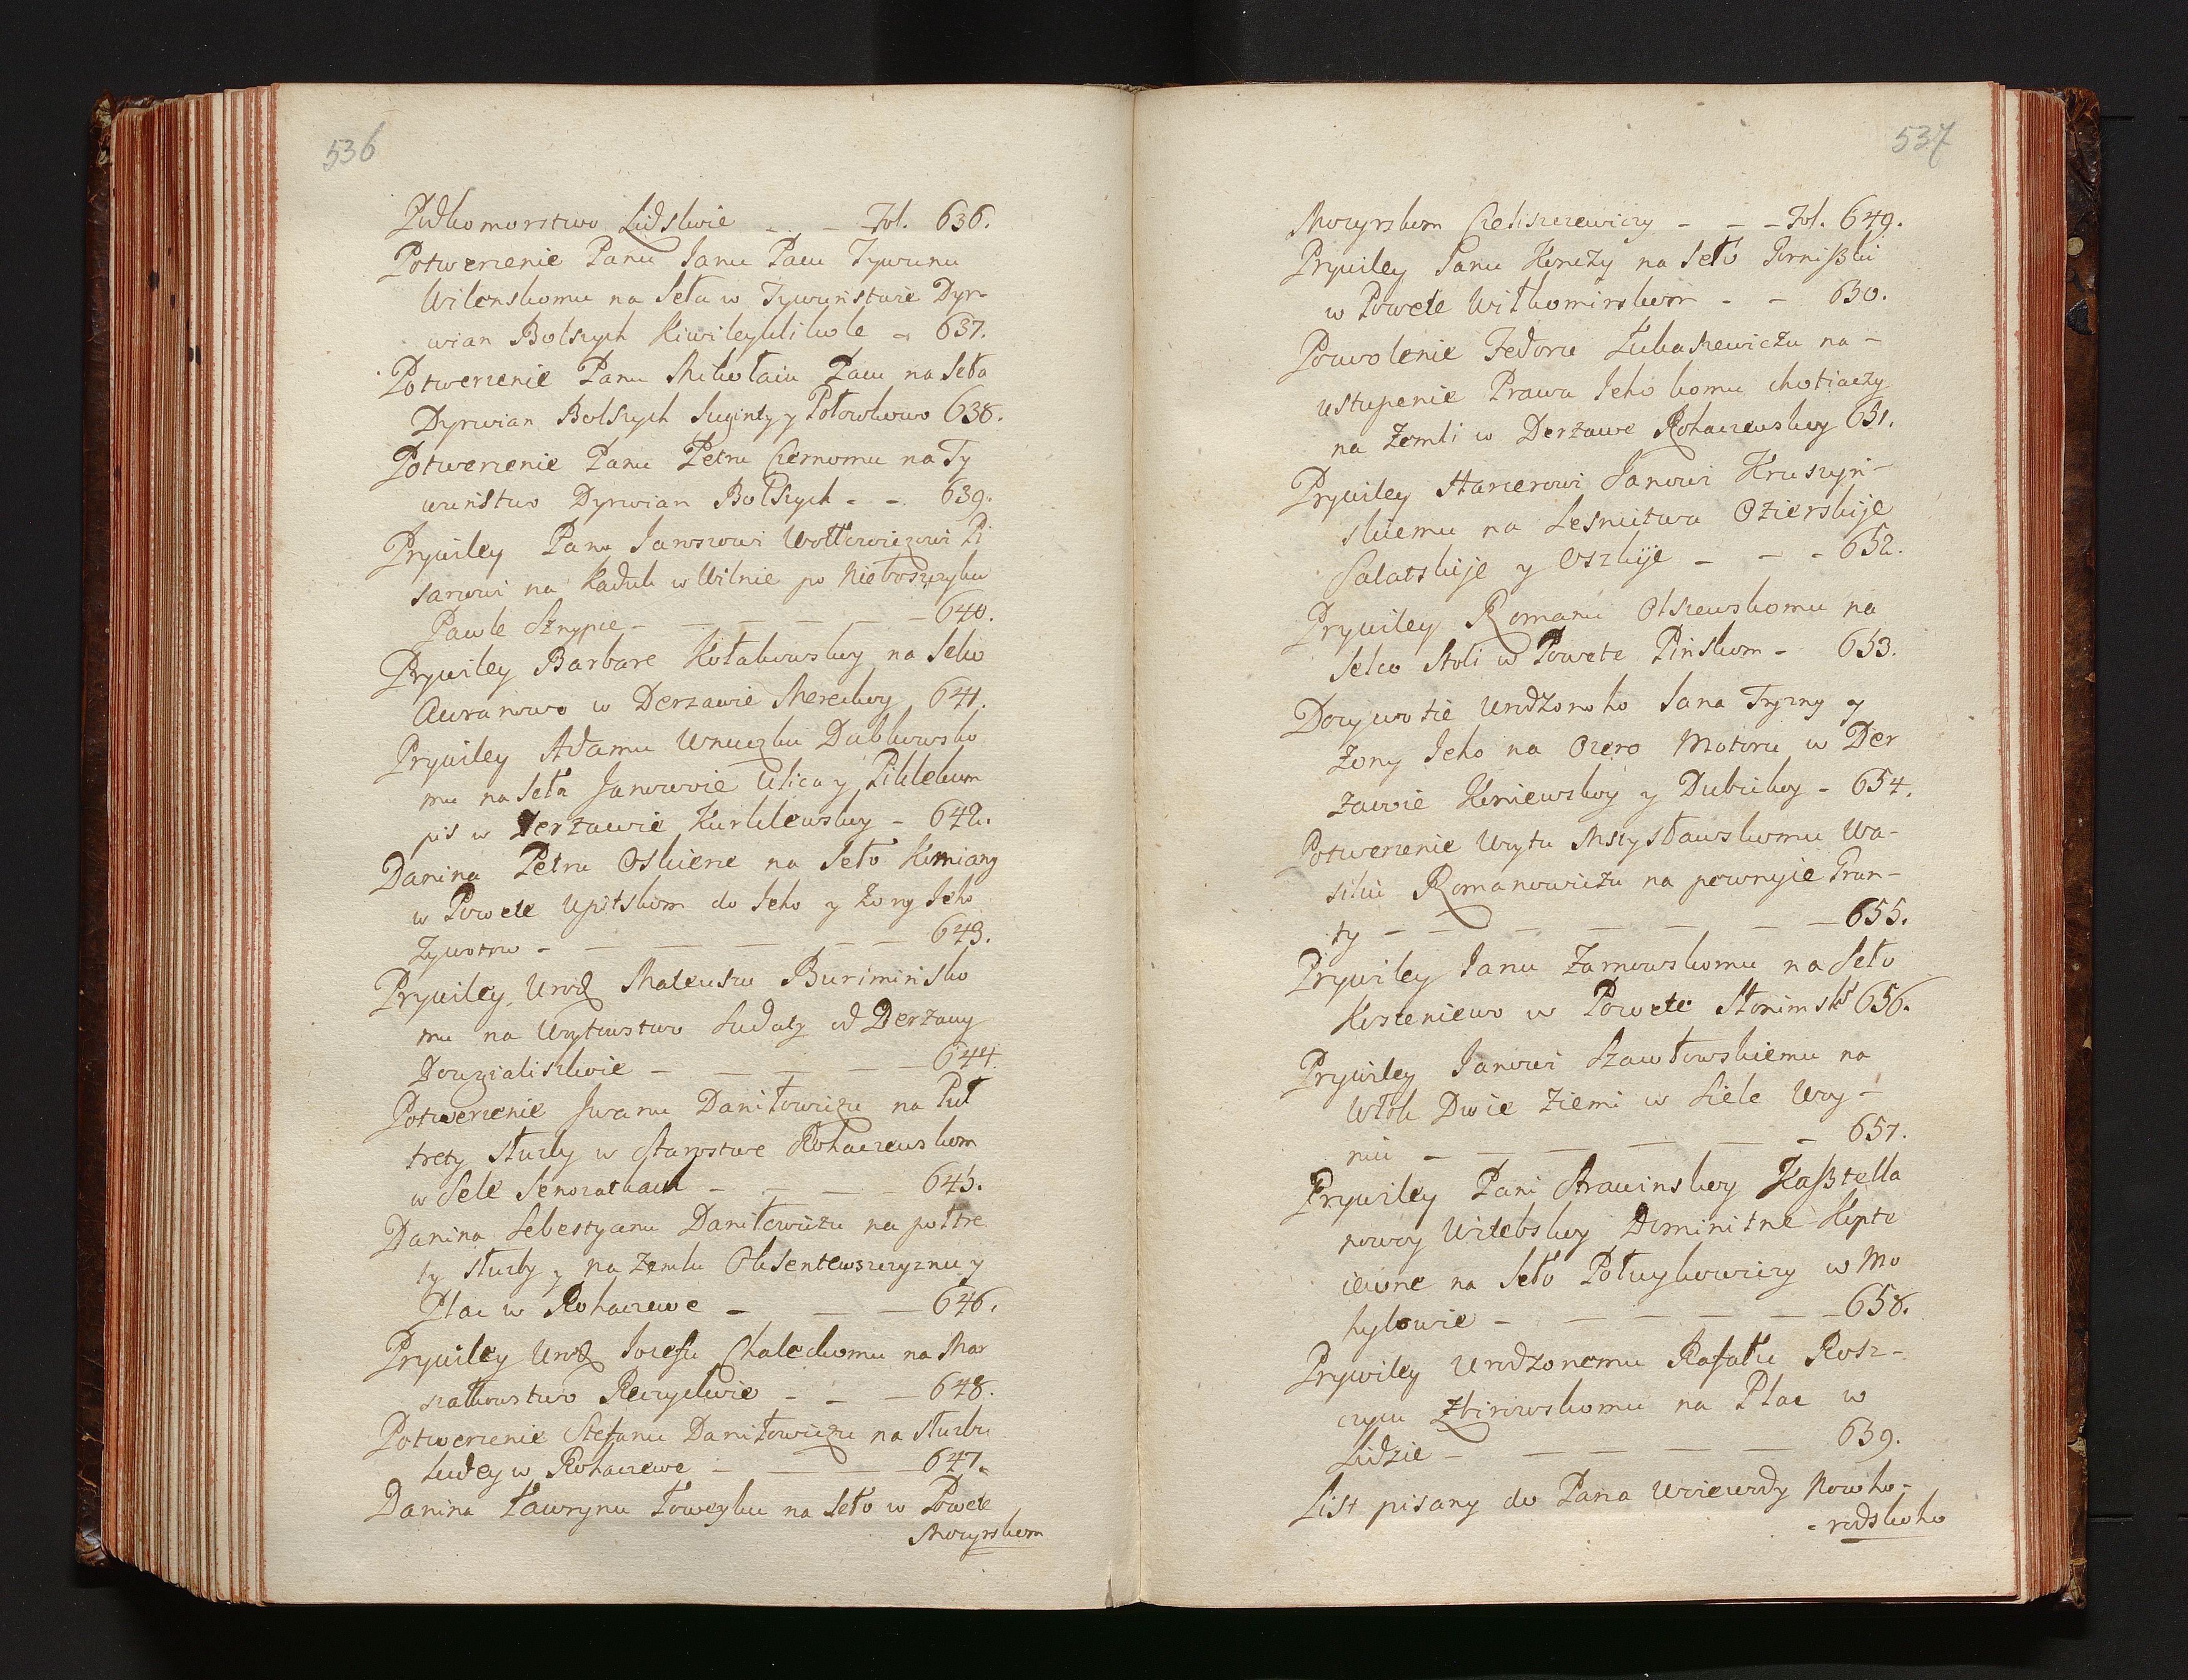 536
Pidkomorstwo Lidskoie - - - Fol. 636.
Potwerzenie Panu Janu Pacu Tywunu
Wilenskomu na Seła w Tywuństwie Dyr-
wian Bolszych Kiwileykikole - 637.
Potwerzenie Panu Mikołaiu Pacu na Seła
Dyrwian Bolszych Suginty y Połowkowo 638.
Potwerzenie Panu Petru Czernomu na Ty
wuństwo Dyrwian Bolszych - - 639.
Prywiley Panu Jaroszowi Wołłowiczowi Pi
sarowi na Kaduk w Wilnie po Nieboszczyku
Pawle Sznypie - — — — — 640.
Prywiley Barbare Kołakowskoy na Selco
Awranowo w Derzawie Mereckoy 641.
Prywiley Adamu Wnuczku Dubkowsko
mu na Seła Janowoie Ulica y
pis w Derzawie Kurklewskoy - 642.
Danina Petru Oskierce na Seło Kimiany
w Powete Upitskom do Jeho y Zony Jeho
Zywotow - — — — — 643.
Prywiley Urodz Mateuszu Burimińsko
mu na Woytowstwo Ludacz od Derzawy
Dowgialiszkoie - — — — 644.
Potwerzenie Jwanu Daniłowiczu na Puł
trety Służby w Starostwe Rohaczewskom
w Sele Senozatkach - — — — 645.
Danina Sebestyanu Daniłowiczu na połtre
ty służby y na Zemlu Oksentewszczyznu y
Plac w Rohaczewe - — — 646.
Prywiley Urodz Jozefu Chaleckomu na Mar
szałkowstwo Reczyckoie - - — 648.
Potwerzenie Stefanu Daniłowiczu na służbu
ludey w Rohaczewe - — — 647.
Danina Ławrynu Łoweyku na Seło w Powete
Mozyrskom
537
Mozyrskom Czeliszczewiczy - - - Fol. 649.
Prywiley Janu Konczy na Seło
w Powete Wiłkomirskom - - 650.
Powolenie Fedoru Łukaszewiczu na -
ustupenie Prawa Jeho komu chotiaczy
na Zemli w Derzawe Rohaczewskoy 651.
Prywiley Harcerowi Janowi Kruszyń-
skiemu na Lesnictwa Ozierskije
Salatskije y Oszkije - - - 652.
Prywiley Romanu Olszewskomu na
Selco Stoli w Powete Pińskom - 653.
Dozywotie Urodzonoho Jana Tryzny y
Zony Jeho na Ozero Motoru w Der
zawie Koniewskoy y Dubickoy - 654.
Potwerzenie Woytu Mscysławskomu Wa-
siliu Romanowiczu na pewnyie Grun-
ty - — — — — — 655.
Prywiley Janu Zarnowskomu na Seło
Koszeniewo w Powete Słonimsko 656.
Prywiley Janowi Szawłowskiemu na
Włok Dwie Ziemi w Siele Woy-
niu - — — — — — 657.
Prywiley Pani Strawinskoy Kaßtella
nowoy Witebskoy Dominitne Kopte
iewne na Seło Połuykowiczy w Mo
hylowie - — — — — — 658.
Prywiley Urodzonomu Rafału Rosz-
czycu Zbirowskomu na Plac w
Lidzie - — — — — 659.
List pisany do Pana Woiewody Nowho-
- rodskoho